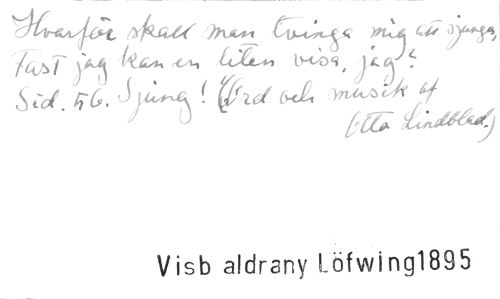 Hvarför skall man tvinga mig att sjunga,
Fast jag kan en liten visa, jag?
Sid. 56. Sjung! (Ord och musik af
Otto Lindblad.)
Visb aldrany Löfwing1895